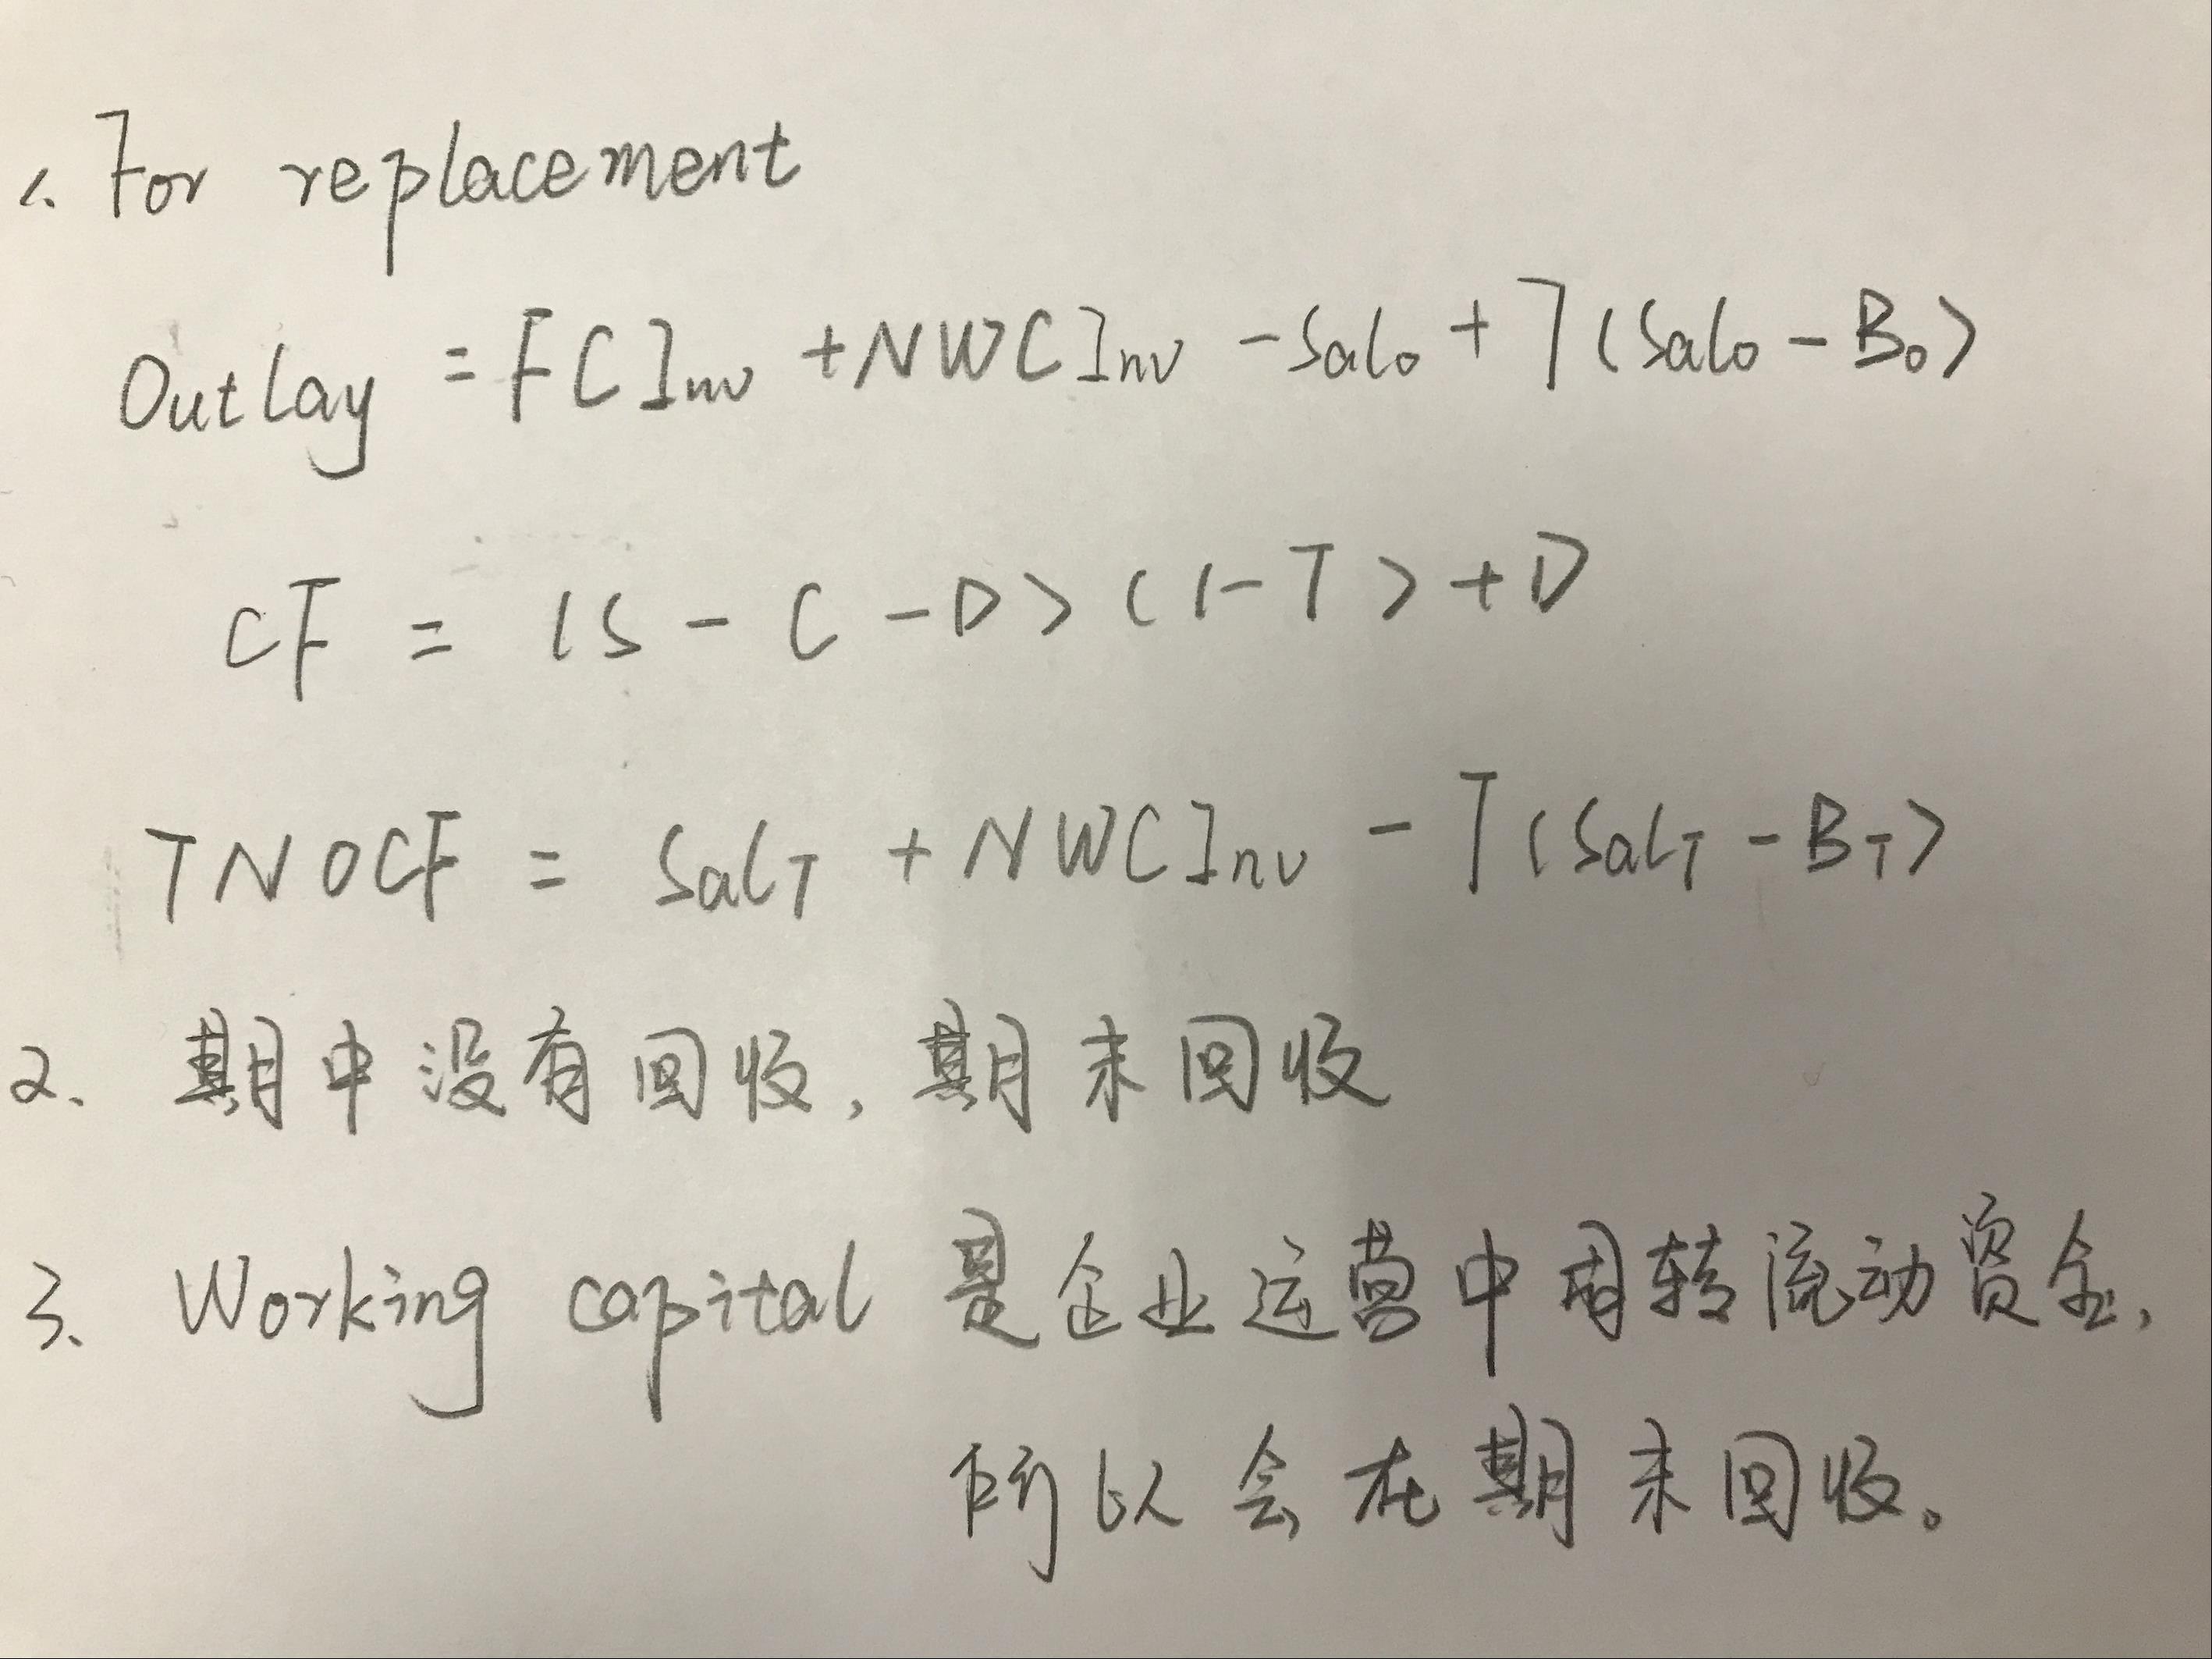 1. For replacement
Outlay = FCInv + NWCInv - Sal₀ + T(Sal₀ - B₀)
CF = (S - C - D)(1-T) + D
TNOCF = SalT + NWCInv - T(SalT - BT)
2、期中没有回收,期末回收
3、Working capital 是企业运营中周转流动资金,
所以会在期末回收。